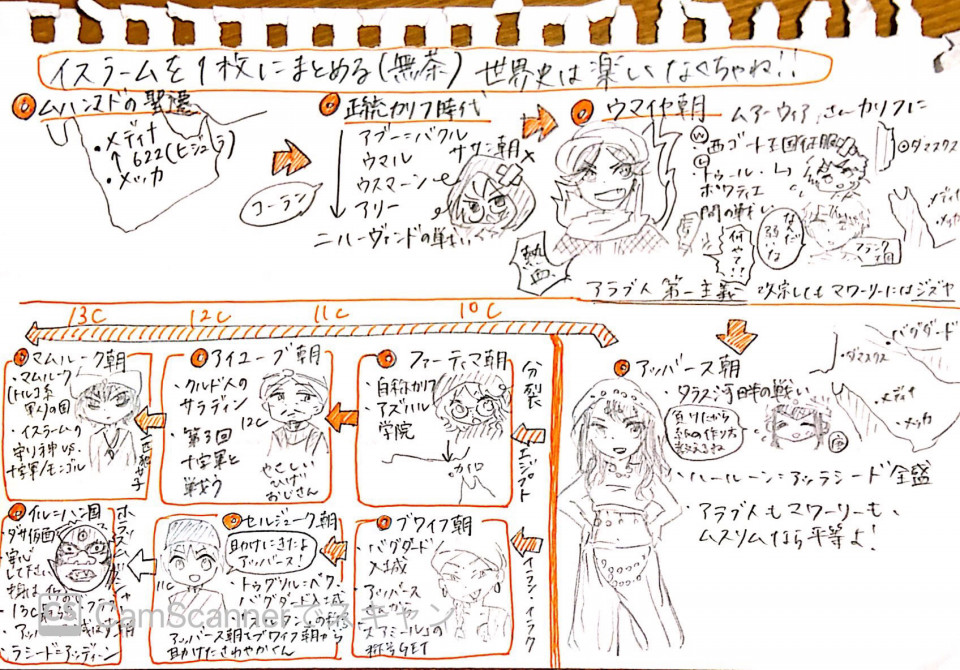 イスラームを1枚にまとめる(無茶) 世界史は楽しくなくちゃね!!
ムハンマドの聖遷
・メディナ
↑ 622(ヒジュラ)
・メッカ
コーラン
正統カリフ時代
アブー=バクル
ウマル
ウスマーン
アリー
ササン朝
ニハーヴァンドの戦い
ウマイヤ朝
ムアーウィヤさんカリフに
W
西ゴート王国征服
L
トゥール・
ポワティエ
間の戦い
熱血
何やて!!
なんだ
弱いな
フランク
王国
ダマスクス
・メディナ
・メッカ
アラブ人第一主義 改宗してもマワーリーにはジズヤ
13C 12C 11C 10C
アッバース朝
タラス河畔の戦い
負けたから
紙の作り方
教えるね
唐
・バグダード
・ダマスクス
・メディナ
・メッカ
・ハールーン=アッラシード 全盛
・アラブ人もマワーリーも、
ムスリムなら平等よ!
分裂
エジプト
イラン・イラク
ファーティマ朝
・自称カリフ
・アズハル
学院
・カイロ
アイユーブ朝
・クルド人の
サラディン
12C
・第3回
十字軍と
戦う
やさしい
ひげ
おじさん
マムルーク朝
・マムルーク
(トルコ系
軍人)の国
・イスラームの
守り神 vs.
十字軍/モンゴル
ブワイフ朝
・バグダード
入城
・アッバース
大アミールの
称号GET
セルジューク朝
助けにきたよ
アッバース!
11C
・トゥグリル=ベク、
バグダード入城
アッバース朝でブワイフ朝から
助けたさわやかくん
イル=ハン国
・ダサ仮面
・安心
して下さい
・13C
・ラシード=アッディーン
CS CamScannerでスキャン